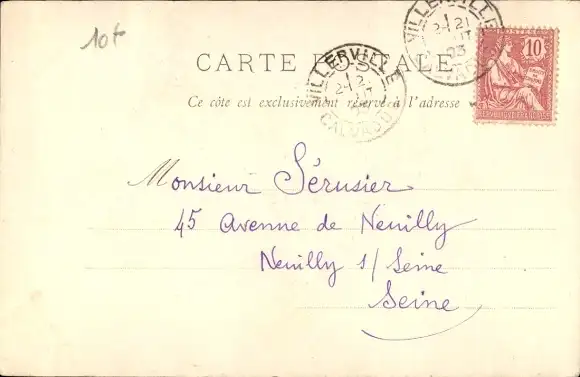 10f
CARTE POSTALE
Ce côté est exclusivement réservé à l'adresse
VILLERVILLE
CALVADOS
VILLERVILLE
21
03
POSTES
10
REPUBLIQUE FRANÇAISE
Monsieur Sérusier
45 Avenue de Neuilly
Neuilly s/ Seine
Seine